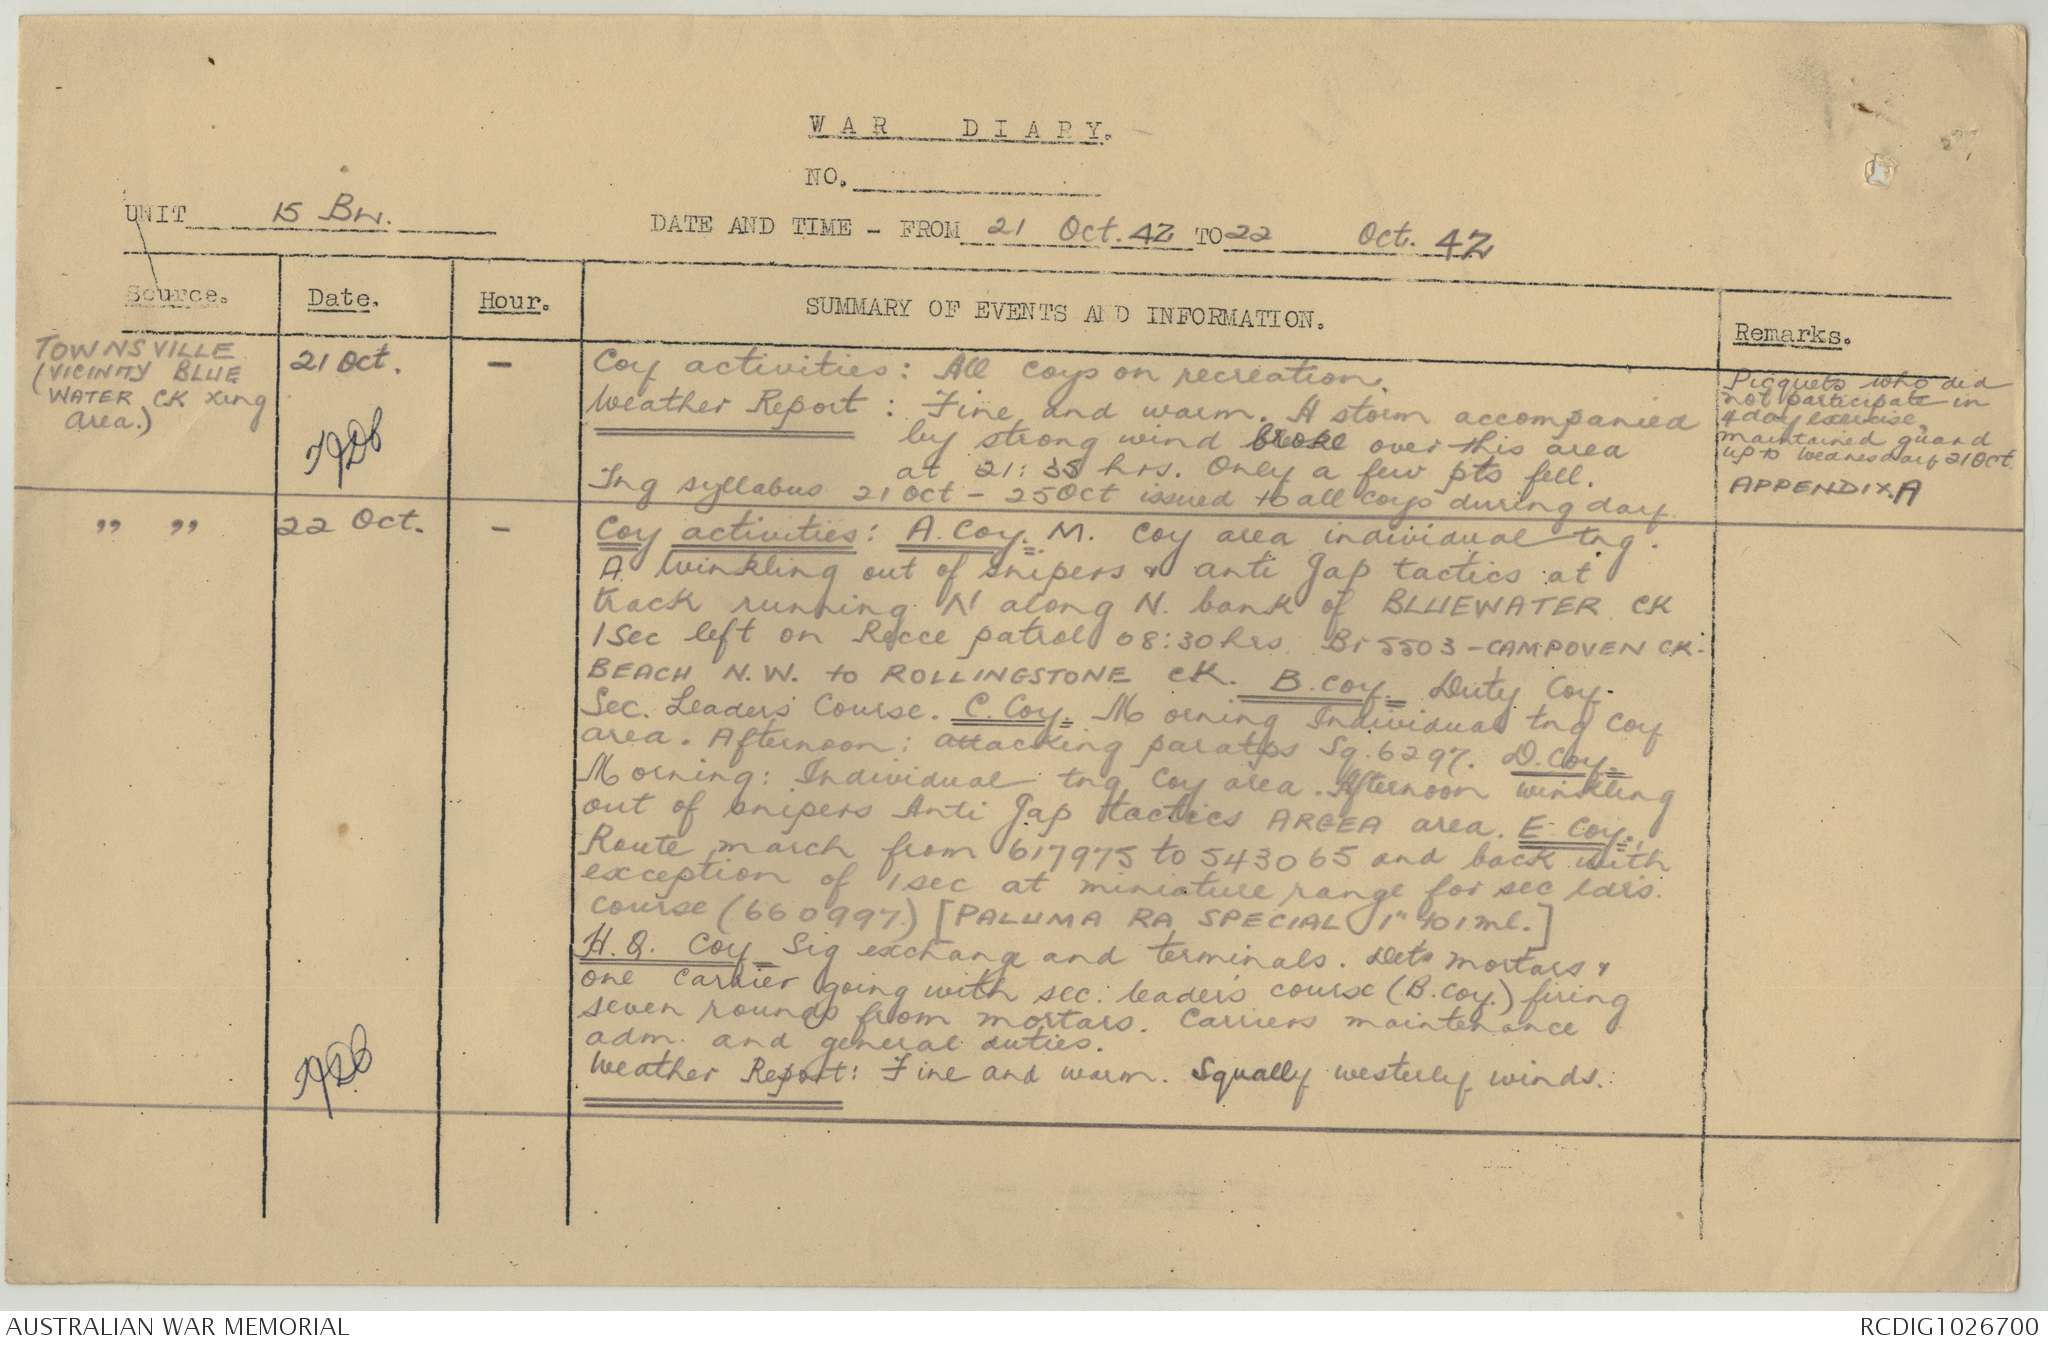 WAR DIARY.
NO.
UNIT 15 Bn.
DATE AND TIME - FROM 21 Oct. 42 TO 22 Oct. 42
Source. Date. Hour. SUMMARY OF EVENTS AND INFORMATION. Remarks.
TOWNSVILLE
(VICINITY BLUE
WATER CK Xing
area.)
21 Oct.
-
Coy activities: All coys on recreation.
Weather Report: Fine and warm. A storm accompanied
by strong wind broke over this area
at 21:35 hrs. Only a few pts fell.
Tng syllabus 21 Oct - 25 Oct issued to all coys during day.
Picquets who did
not participate in
4 day exercise,
maintained guard
up to Wednesday 21 Oct.
APPENDIX. A
" "
22 Oct.
-
Coy activities: A. Coy. M. Coy area individual tng.
A. Winkling out of snipers & anti Jap tactics at
track running N along N. bank of BLUEWATER CK
1 Sec left on Recce patrol 08:30 hrs. Br 5503 - CAMPOVEN CK.
BEACH N.W. to ROLLINGSTONE CK. B. Coy. Duty Coy.
Sec. Leaders Course. C. Coy. Morning Individual tng Coy
area. Afternoon: attacking paratps Sq. 6297. D. Coy.
Morning: Individual tng Coy area. Afternoon winkling
out of snipers Anti Jap tactics ARGEA area. E Coy.
Route march from 617975 to 543065 and back with
exception of 1 sec at miniature range for sec ldrs.
course (660997.) [PALUMA RA SPECIAL 1" to 1 ml.]
H.Q. Coy Sig exchange and terminals. Dets mortars &
one carrier going with sec. leaders course (B. Coy.) firing
seven rounds from mortars. Carriers maintenance
adm. and general duties.
Weather Report: Fine and warm. Squally westerly winds.
AUSTRALIAN WAR MEMORIAL
RCDIG1026700